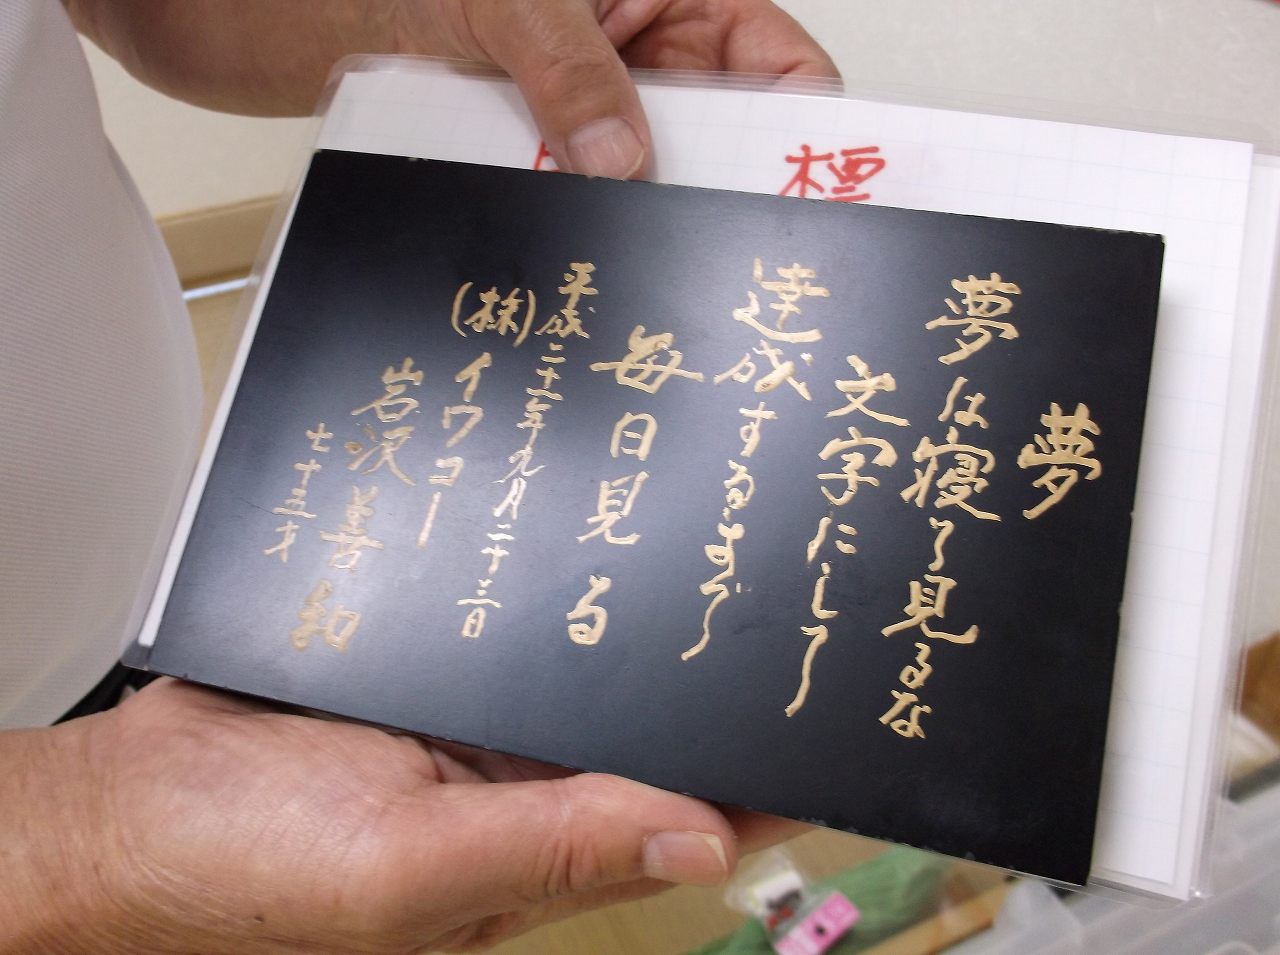 標
夢
夢は寝て見るな
文字にして
達成するまで
毎日見る
平成二十一年九月二十三日
(株)イワコー
岩沢善和
七十五才